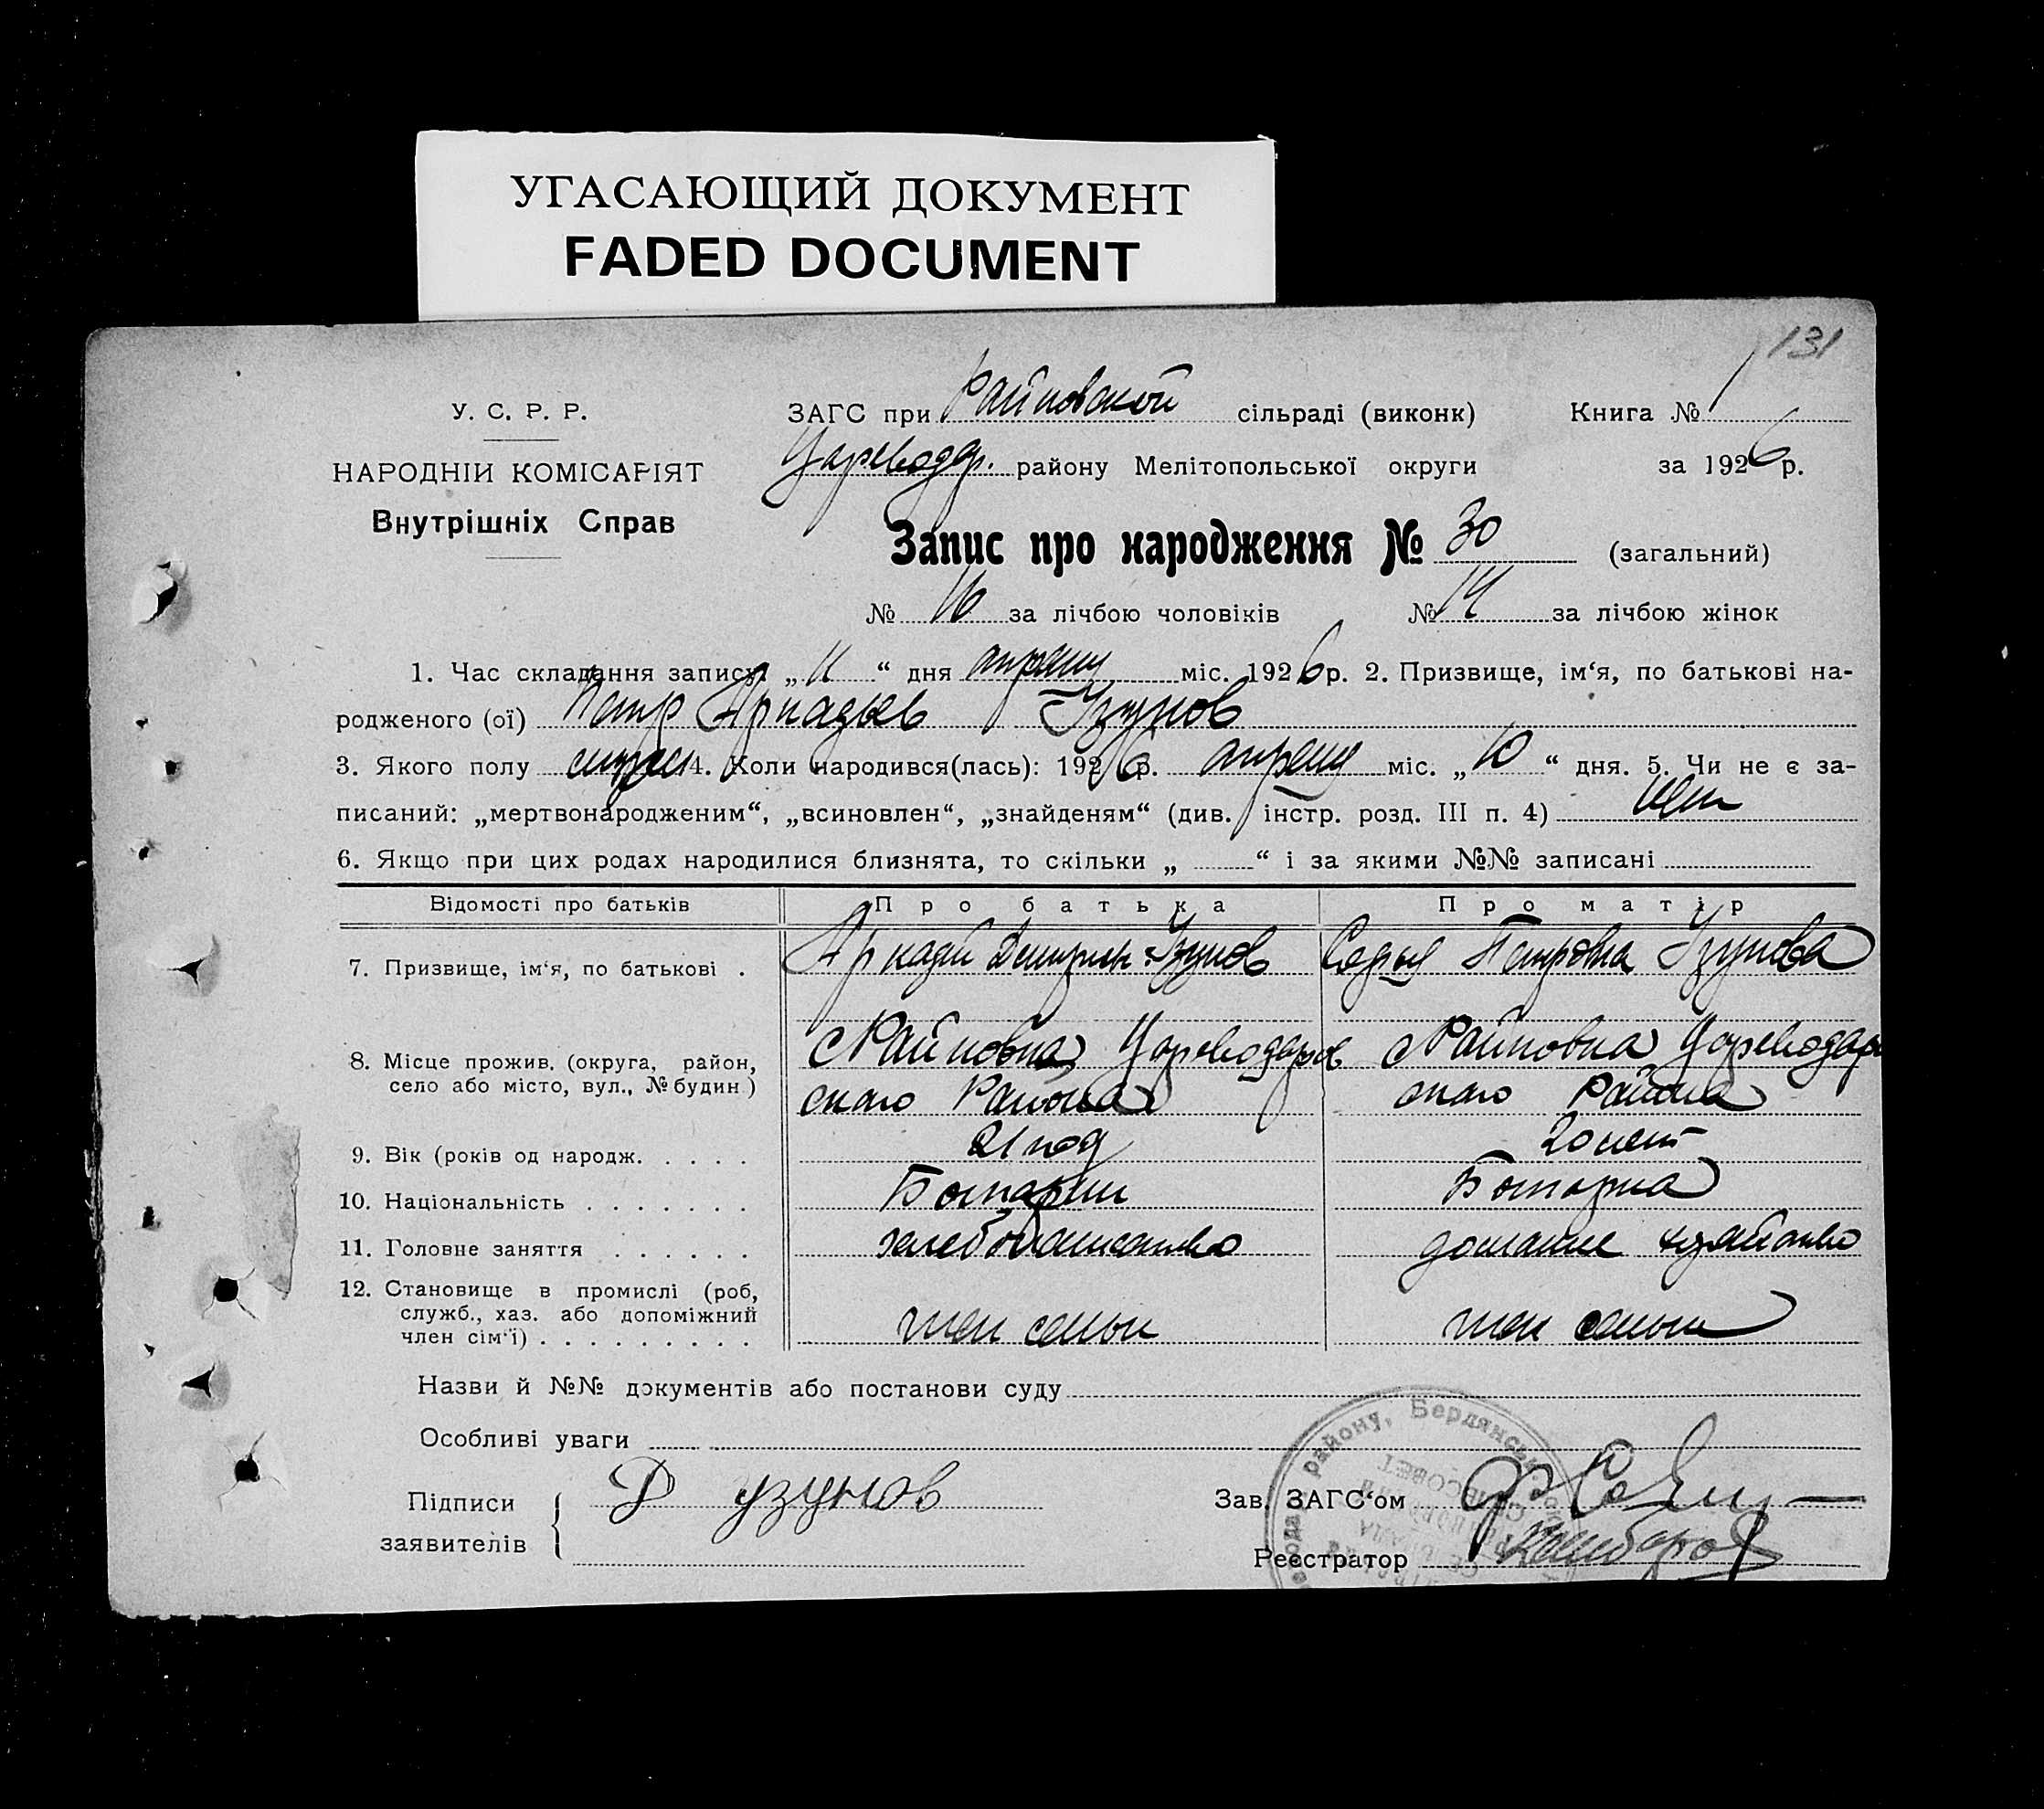 УГАСАЮЩИЙ ДОКУМЕНТ
FADED DOCUMENT
131
У. С. Р. Р.
ЗАГС при Райновской сільраді (виконк)
Книга № 1
НАРОДНІИ КОМІСАРІЯТ
Цареводар. району Мелітопольської округи
за 1926 р.
Внутрішніх Справ
Запис про народження № 30 (загальний)
№ 16 за лічбою чоловіків № 14 за лічбою жінок
1. Час складання запису: „ 11 “ дня апреля міс. 1926 р. 2. Призвище, ім‘я, по батькові на-
родженого (ої) Петр Аркадьев Узунов
3. Якого полу 4. Коли народився(лась): 1926 р. апреля міс. „ 10 “ дня. 5. Чи не є за-
писаний: „мертвонародженим“, „всиновлен“, „знайденям“ (див. інстр. розд. III п. 4) нет
6. Якщо при цих родах народилися близнята, то скільки „ “ і за якими №№ записані
Відомості про батьків
Про батька
Про матір
7. Призвище, ім‘я, по батькові .
Аркадий Узунов
Софья Петровна Узунова
8. Місце прожив. (округа, район,
село або місто, вул., № будин.)
с Райновка Цареводаров
ского Района
с Райновка Цареводаров
ского Района
9. Вік (років од народж. . . . .
21 год
20 лет
10. Національність . . . . . . .
Болгарин
Болгарка
11. Головне заняття . . . . . .
хлебопашество
домашнее хозяйство
12. Становище в промислі (роб,
служб., хаз. або допоміжний
член сім‘ї) . . . . . . . . .
член семьи
член семьи
Назви й №№ документів або постанови суду
Особливі уваги
Підписи
заявителів
Д узунов
Зав. ЗАГС‘ом
Реєстратор
району, Бердянськ.